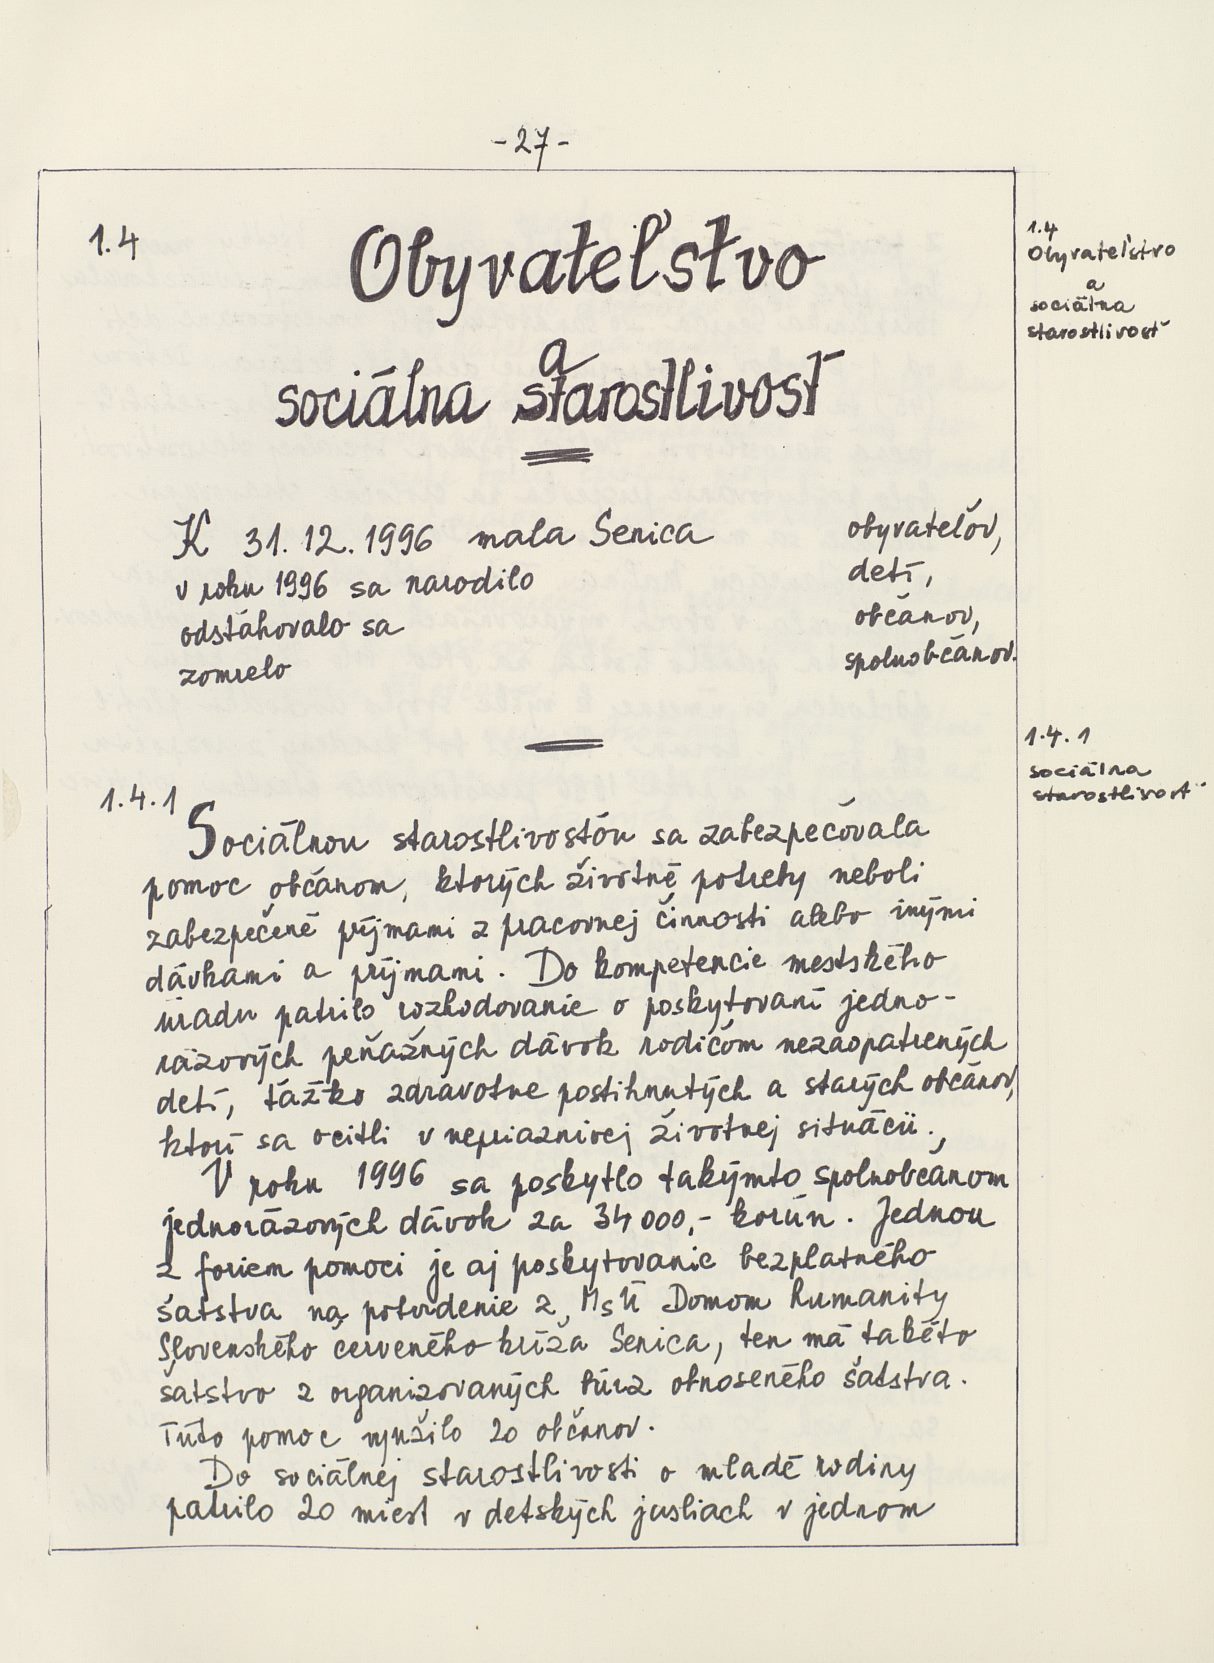 -27-
1.4 Obyvateľstvo
a
sociálna starostlivosť
1.4
Obyvateľstvo
a
sociálna
starostlivosť
K 31.12.1996 mala Senica obyvateľov,
v roku 1996 sa narodilo detí,
odsťahovalo sa občanov,
zomrelo spoluobčanov.
1.4.1
sociálna
starostlivosť
1.4.1 Sociálnou starostlivosťou sa zabezpečovala
pomoc občanom, ktorých životné potreby neboli
zabezpečené príjmami z pracovnej činnosti alebo inými
dávkami a príjmami. Do kompetencie mestského
úradu patrilo rozhodovanie o poskytovaní jedno-
rázových peňažných dávok rodičom nezaopatrených
detí, ťažko zdravotne postihnutých a starých občanov,
ktorí sa ocitli v nepriaznivej životnej situácii.
V roku 1996 sa poskytlo takýmto spoluobčanom
jednorázových dávok za 34 000,- korún. Jednou
z foriem pomoci je aj poskytovanie bezplatného
šatstva na potvrdenie z MsÚ Domom humanity
Slovenského červeného kríža Senica, ten má takéto
šatstvo z organizovaných búrz obnoseného šatstva.
Túto pomoc využilo 20 občanov.
Do sociálnej starostlivosti o mladé rodiny
patrilo 20 miest v detských jasliach v jednom